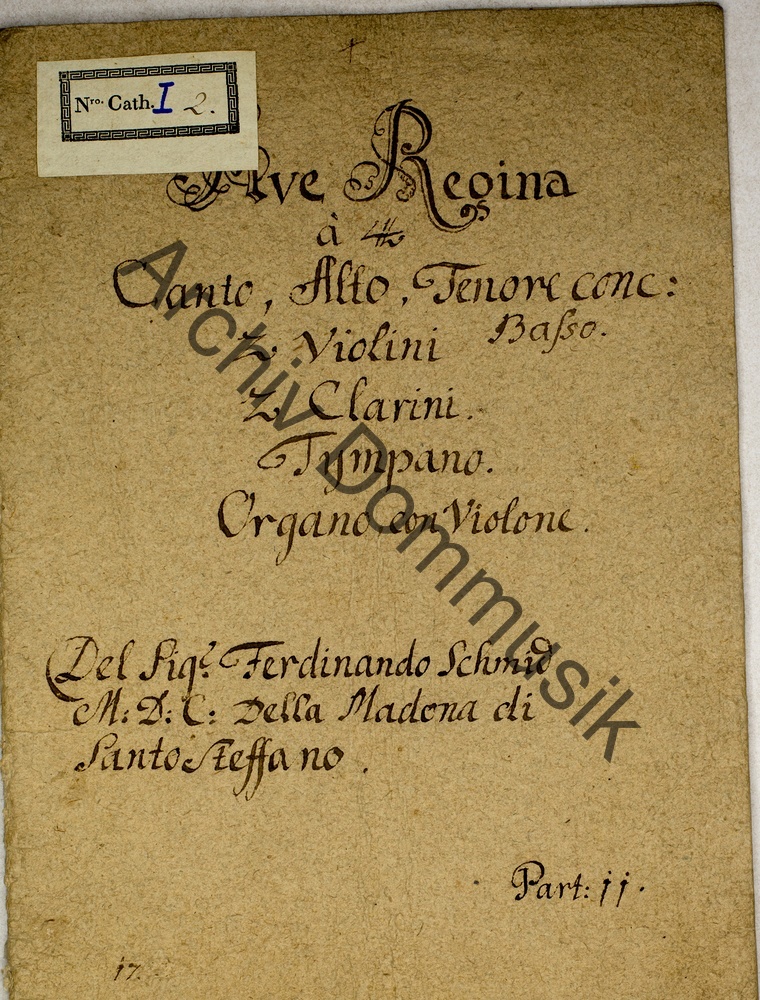 Nro. Cath. I 2.
Ave Regina
à 4.
Canto, Alto, Tenore conc:
Basso.
2. Violini
2. Clarini.
Tympano.
Organo, con Violone.
Del Sigr. Ferdinando Schmid
M: D: C: Della Madona di
Santo Steffano.
Part: 11.
17.
Archiv Dommusik